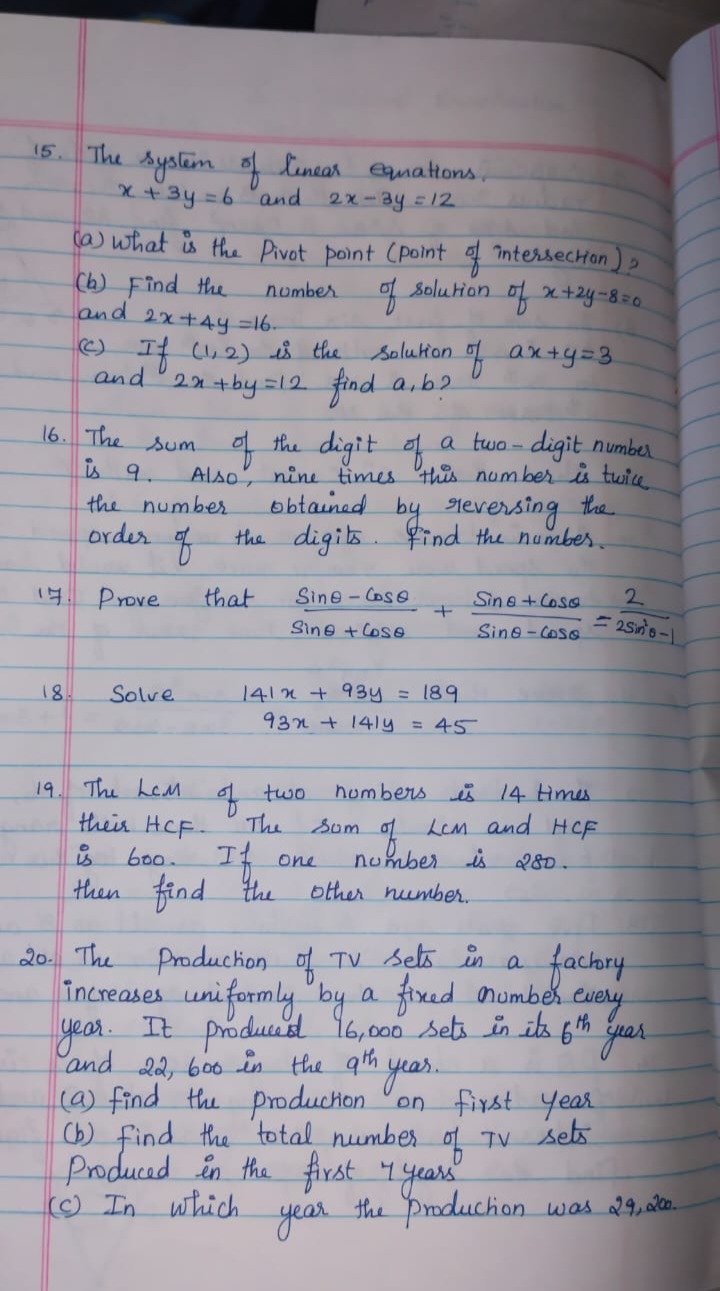 15. The system of linear equations.
x + 3y = 6 and 2x - 3y = 12
(a) What is the Pivot point (point of intersection)?
(b) Find the number of solution of x+2y-8=0
and 2x+4y=16.
(c) If (1,2) is the solution of ax+y=3
and 2x+by=12 find a,b?
16. The sum of the digit of a two-digit number
is 9. Also, nine times this number is twice
the number obtained by reversing the
order of the digits. Find the number.
17. Prove that (Sinθ - Cosθ)/(Sinθ + Cosθ) + (Sinθ + Cosθ)/(Sinθ - Cosθ) = 2/(2Sin²θ-1)
18. Solve 141x + 93y = 189
93x + 141y = 45
19. The LCM of two numbers is 14 times
their HCF. The sum of LCM and HCF
is 600. If one number is 280.
then find the other number.
20. The Production of TV sets in a factory
increases uniformly by a fixed number every
year. It produced 16,000 sets in its 6th year
and 22,600 in the 9th year.
(a) find the production on first year
(b) find the total number of TV sets
Produced in the first 7 years
(c) In which year the production was 29,200.